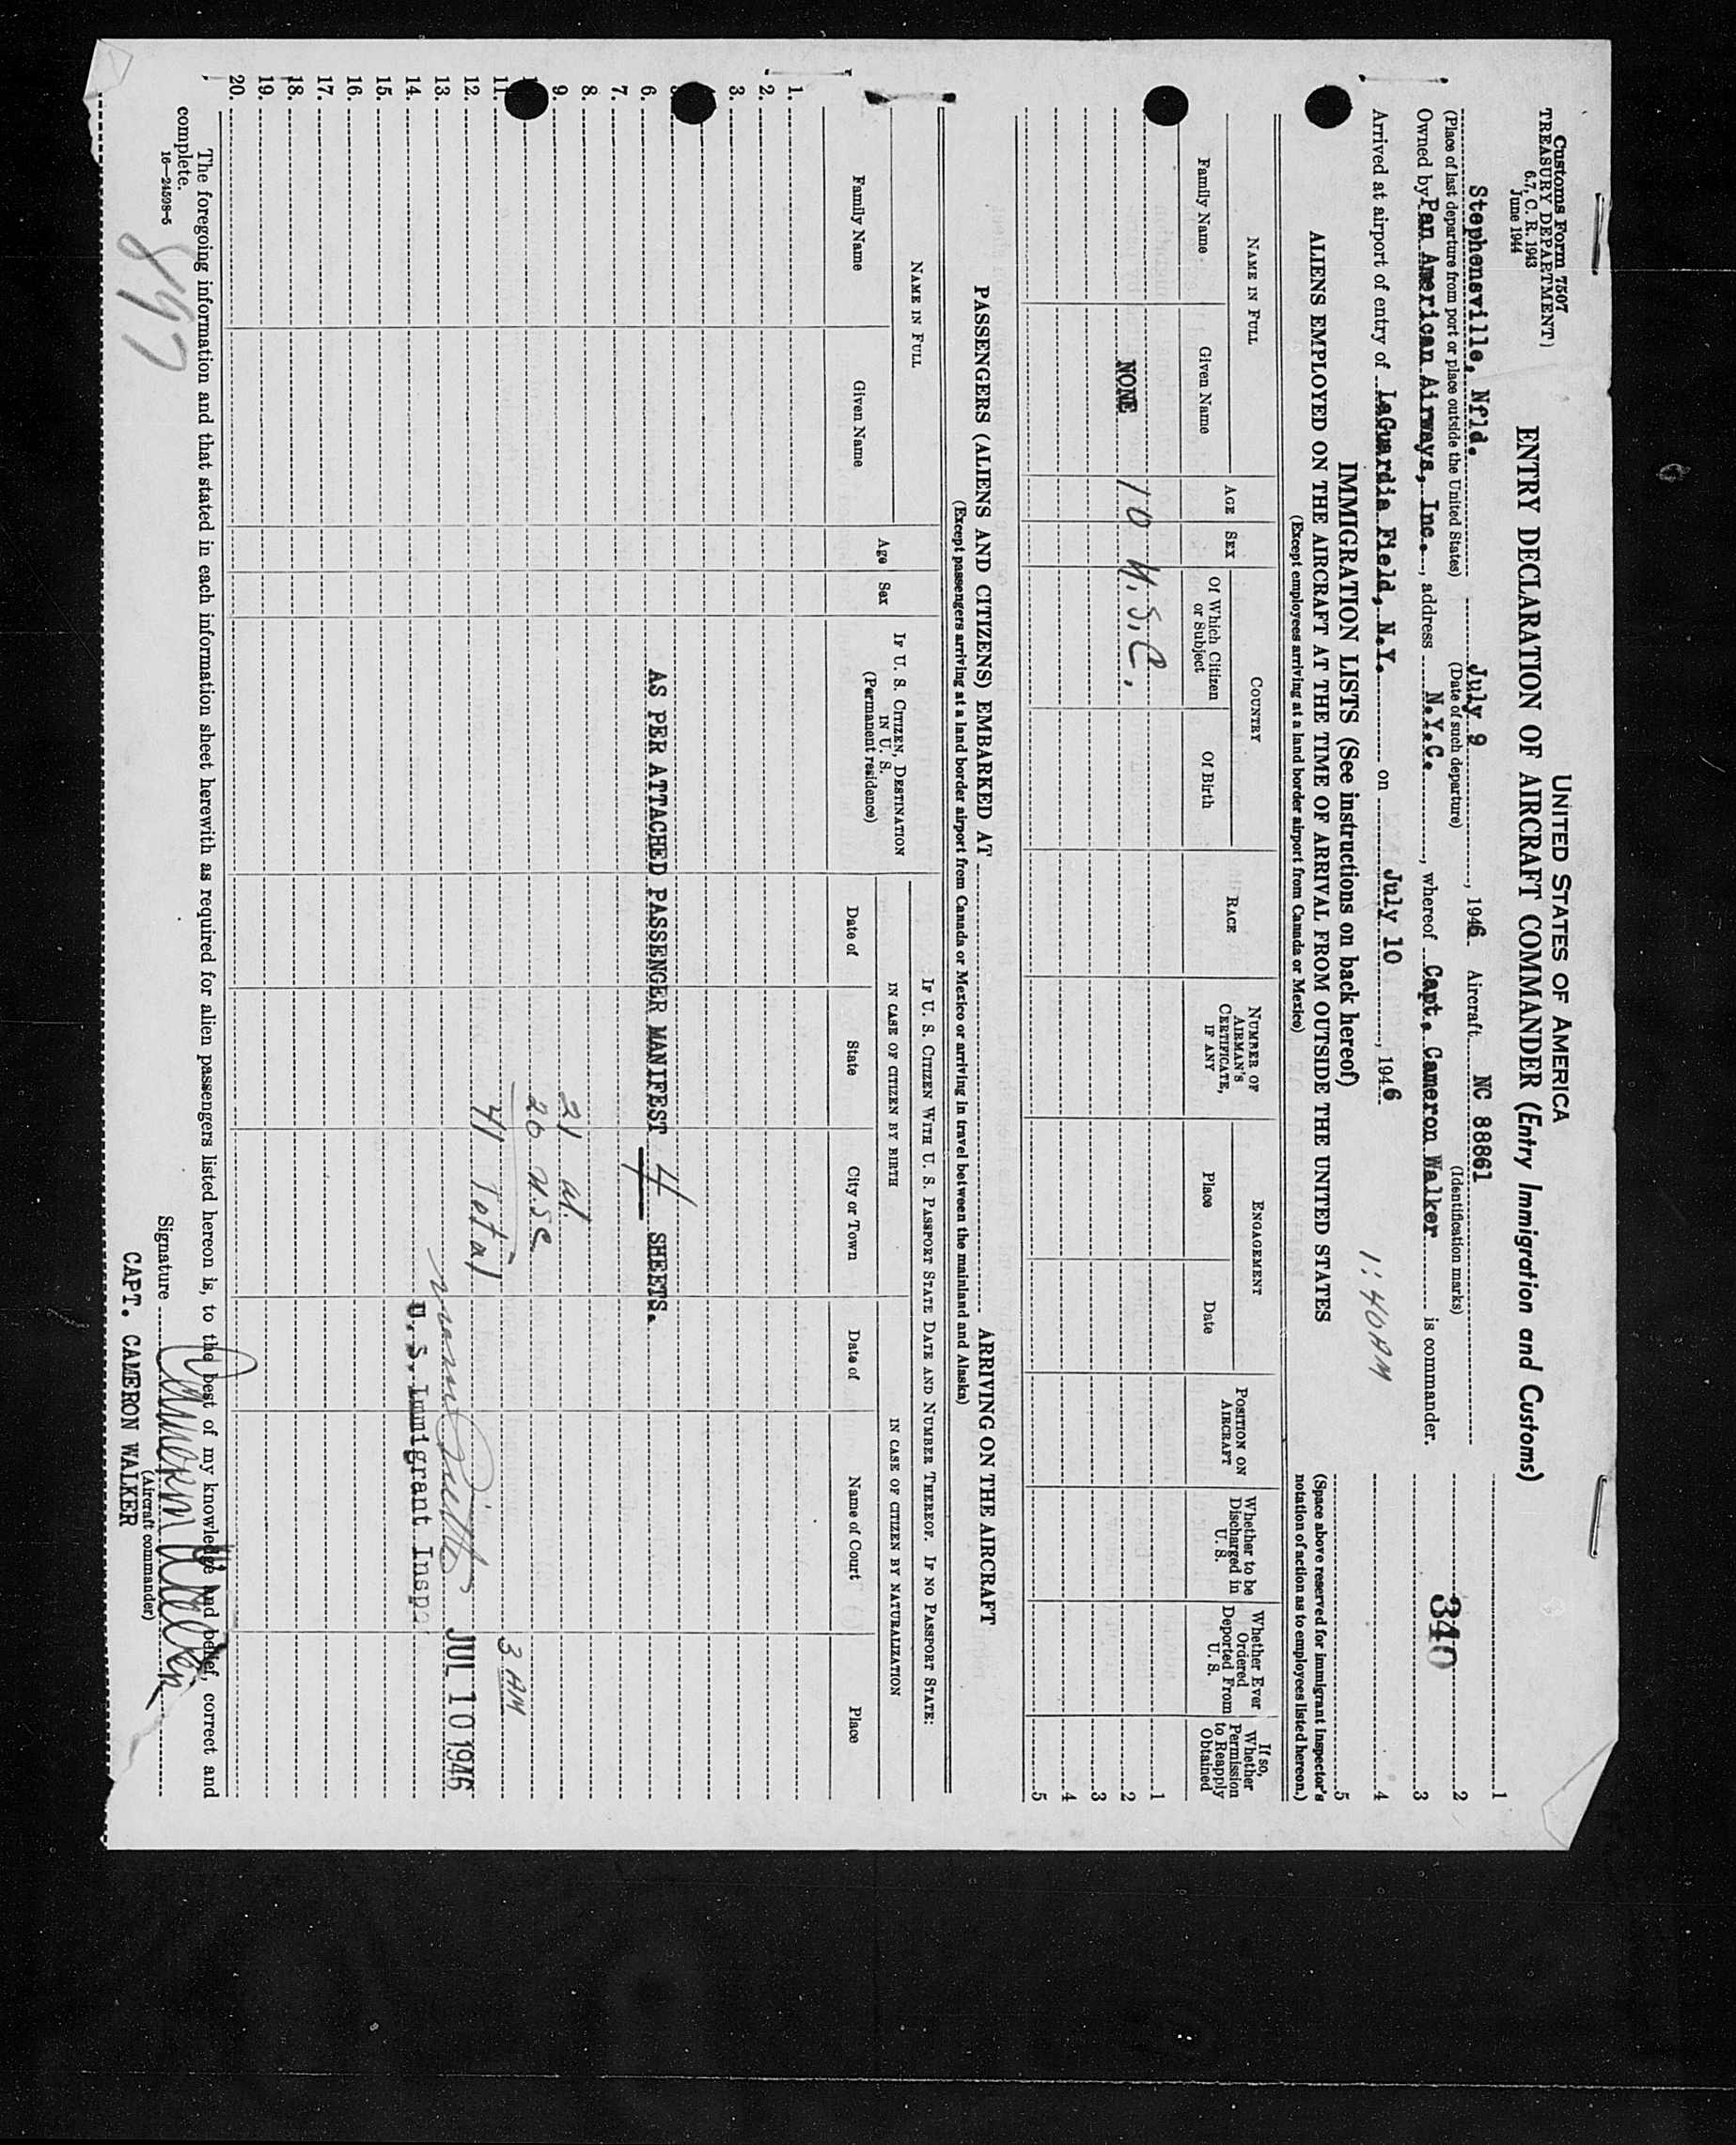 Customs Form 7507
TREASURY DEPARTMENT
6.7, C. R. 1943
June 1944
UNITED STATES OF AMERICA
ENTRY DECLARATION OF AIRCRAFT COMMANDER (Entry Immigration and Customs)
340
Stephensville, Nfld. July 9, 1946 Aircraft NC 88861
(Place of last departure from port or place outside the United States) (Date of such departure) (Identification marks)
Owned by Pan American Airways, Inc., address N.Y.C., whereof Capt. Cameron Walker is commander.
Arrived at airport of entry of LaGuardia Field, N.Y. on July 10, 1946 1:40 AM
1
2
3
4
5
(Space above reserved for immigrant inspector's notation of action as to employees listed hereon.)
IMMIGRATION LISTS (See instructions on back hereof)
ALIENS EMPLOYED ON THE AIRCRAFT AT THE TIME OF ARRIVAL FROM OUTSIDE THE UNITED STATES
(Except employees arriving at a land border airport from Canada or Mexico)
NAME IN FULL
Family Name Given Name
AGE
SEX
COUNTRY
Of Which Citizen or Subject
Of Birth
RACE
NUMBER OF AIRMAN'S CERTIFICATE, IF ANY
ENGAGEMENT
Place Date
POSITION ON AIRCRAFT
Whether to be Discharged in U. S.
Whether Ever Ordered Deported From U. S.
If so, Whether Permission to Reapply Obtained
1
NONE 10 U.S.C. 2
3
4
5
PASSENGERS (ALIENS AND CITIZENS) EMBARKED AT ARRIVING ON THE AIRCRAFT
(Except passengers arriving at a land border airport from Canada or Mexico or arriving in travel between the mainland and Alaska)
NAME IN FULL
Family Name Given Name
Age
Sex
IF U. S. CITIZEN, DESTINATION IN U. S.
(Permanent residence)
IF U. S. CITIZEN WITH U. S. PASSPORT STATE DATE AND NUMBER THEREOF. IF NO PASSPORT STATE:
IN CASE OF CITIZEN BY BIRTH
IN CASE OF CITIZEN BY NATURALIZATION
Date of State City or Town Date of Name of Court Place
1.
2.
3.
6. AS PER ATTACHED PASSENGER MANIFEST 4 SHEETS.
7.
8.
9. 21 al.
20 USC
11. 41 Total 3 AM
12.
13. JUL 10 1946
14. U. S. Immigrant Insp
15.
16.
17.
18.
19.
20.
The foregoing information and that stated in each information sheet herewith as required for alien passengers listed hereon is, to the best of my knowledge and belief, correct and
complete.
16—24598-5
Signature Cameron Walker
(Aircraft commander)
CAPT. CAMERON WALKER
897